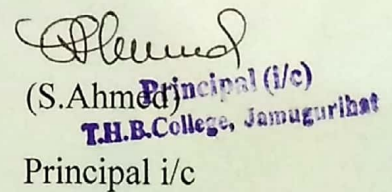 (S.Ahmed)
Principal (i/c)
T.H.B.College, Jamugurihat
Principal i/c